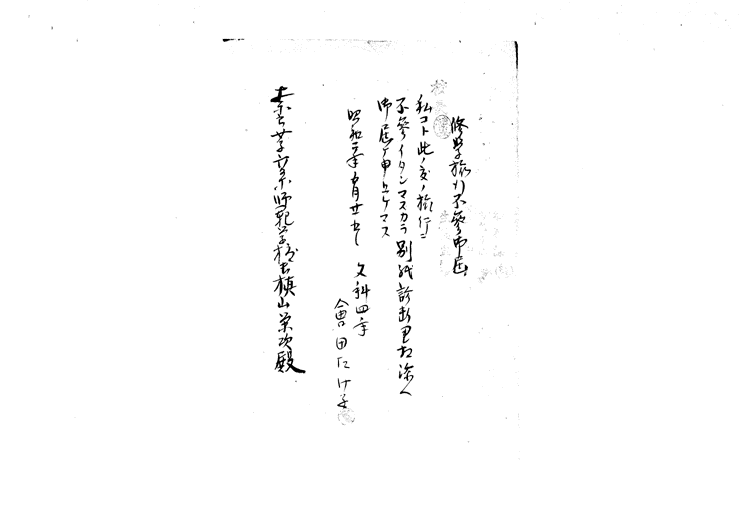 修学旅行不参御届
私コト此ノ度ノ旅行ニ
不参イタシマスカラ別紙診断書相添へ
御届ケ申上ケマス
昭和二年五月廿五日
文科四年
會田たけ子
東京女子高等師範学校長槙山栄次殿